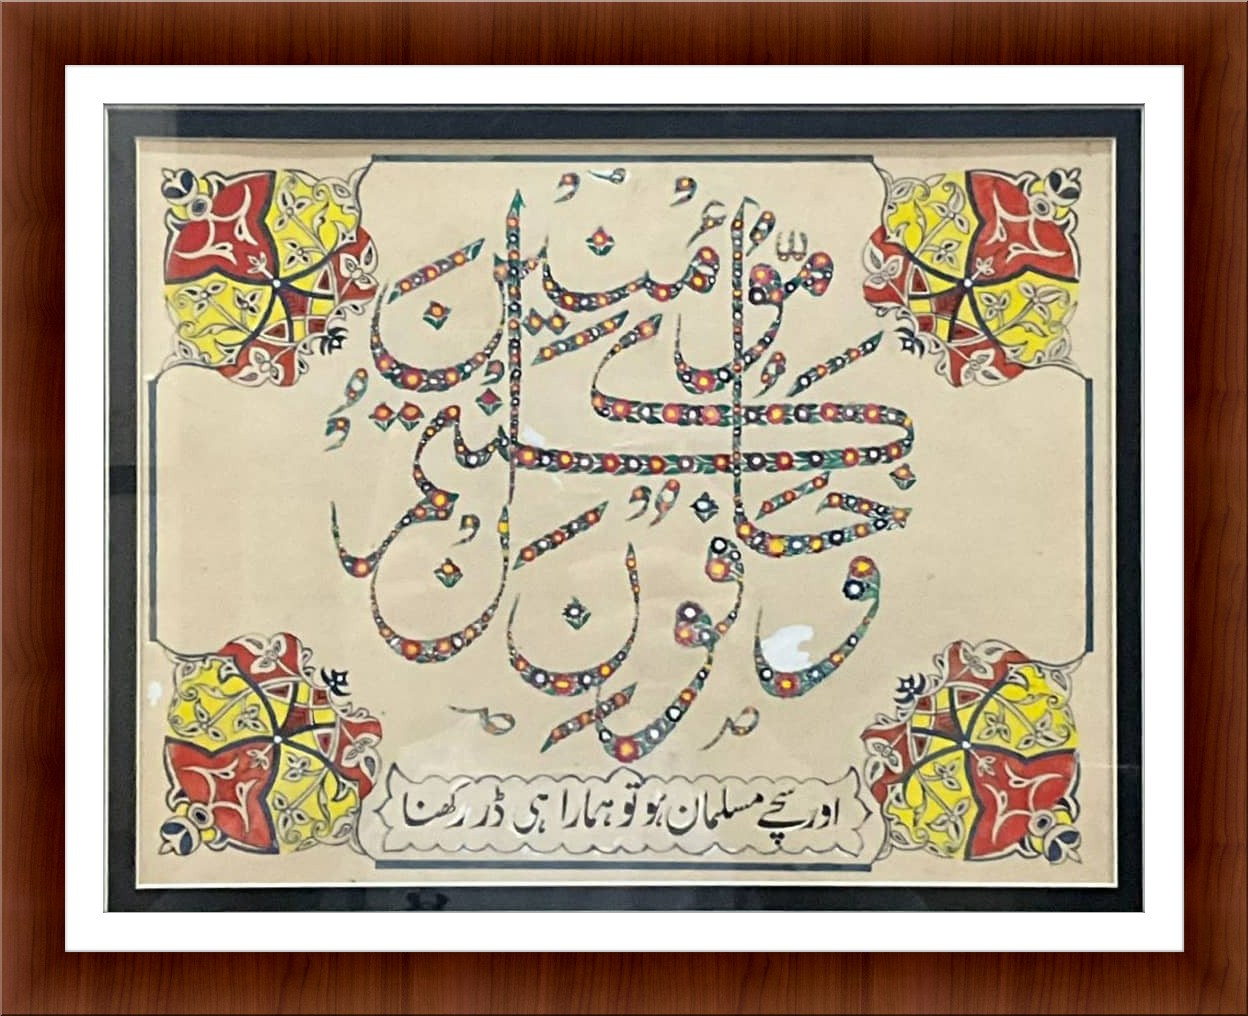 وخافون ان كنتم مّؤمنين
اور سچے مسلمان ہو تو ہمارا ہی ڈر رکھنا